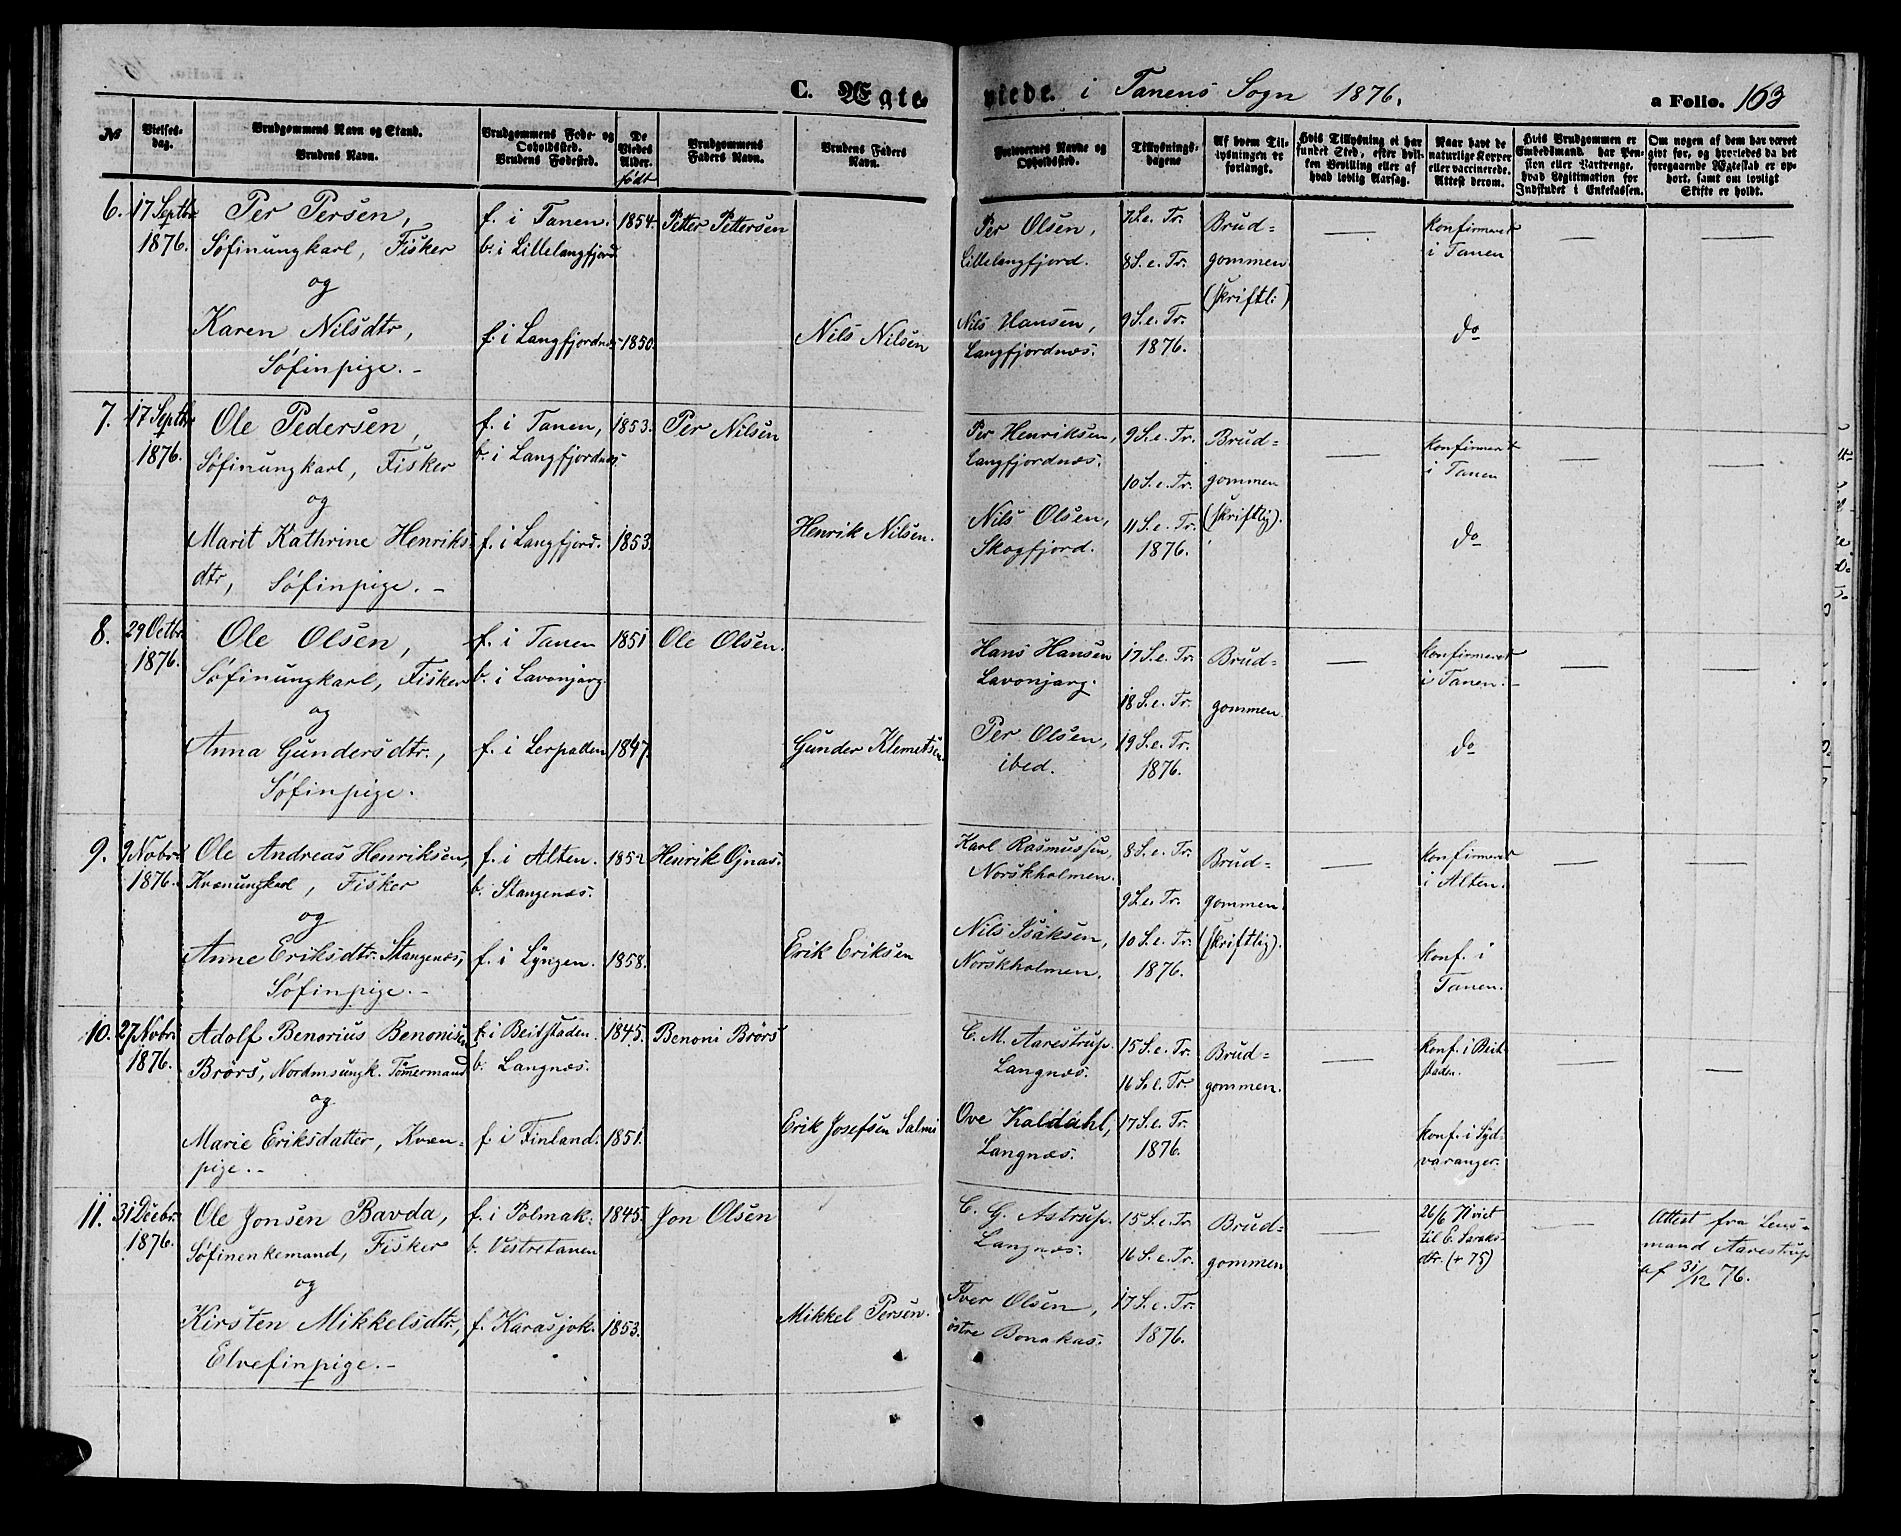 C. Ægteviede. i Tanens Sogn 1876. a Folio. 163
№ | Vielsesdag. | Brudgommens Navn og Stand. Brudens Navn. | Brudgommens Føde- og Opholdssted. Brudens Fødested. | De Viedes Alder. født | Brudgommens Faders Navn. | Brudens Faders Navn. | Forlovernes Navne og Opholdssted. | Tillysningsdagene | Af hvem Tillysningen er forlangt. | Hvis Tillysning ei har fundet Sted, efter hvilken Bevilling eller af hvad lovlig Aarsag. | Naar havt de naturlige Kopper eller vaccinerede. Attest derom. | Hvis Brudgommen er Embedsmand, har Pension eller Vartpenge, hvad Legitimation for Indskudet i Enkekassen. | Om nogen af dem har været gift før, og hvorledes da det foregaaende Ægteskab er ophørt, samt om lovligt Skifte er holdt.
6. | 17 Septbr | Per Persen, | f. i Tanen. | 1854. | Petter Pettersen | Per Olsen, | 7 S. e. Tr. | Brud= | — | Konfirmeret | — | —
1876. | Søfinungkarl, Fisker | b. i Lillelangfjord. | Lillelangfjord. | 8 S. e. Tr. | gommen. | i Tanen
og | (skriftl:)
Karen Nilsdtr, | f. i Langfjordnæs | 1850. | Nils Nilsen | Nils Hansen, | 9 S. e. Tr. | do
Søfinpige. – | Langfjordnæs. | 1876.
7. | 17 Septbr | Ole Pedersen, | f. i Tanen, | 1853. | Per Nilsen | Per Henriksen, | 9 S. e. Tr. | Brud= | — | Konfirmeret | — | —
1876. | Søfinungkarl, Fisker | b. i Langfjordnæs. | Langfjordnæs. | 10 S. e. Tr. | gommen | i Tanen
og
Marit Kathrine Henriks- | f. i Langfjord. | 1853. | Henrik Nilsen. | Nils Olsen, | 11 S. e. Tr. | (skriftlig). | do
dtr, Søfinpige. – | Skogfjord. | 1876.
8. | 29 Octbr. | Ole Olsen, | f. i Tanen | 1851 | Ole Olsen. | Hans Hansen | 17 S. e. Tr. | Brud= | — | Konfirmeret | — | —
1876. | Søfinungkarl, Fisker | b. i Lavonjarg. | Lavonjarg. | 18 S. e. Tr. | gommen. | i Tanen. –
og
Anna Gundersdtr., | f. i Lerpollen | 1847. | Gunder Klemetsen. | Per Olsen, | 19 S. e. Tr. | do
Søfinpige. | ibed. | 1876.
9. | 9 Novbr. | Ole Andreas Henriksen, | f. i Alten. | 1852 | Henrik Ojnas. | Karl Rasmussen, | 8 S. e. Tr. | Brud= | — | Konfirmeret | — | —
1876. | Kvænungkarl, Fisker | b. Stangenæs. | Norskholmen. | 9 S. e. Tr. | gommen. | i Alten.
og
Anne Eriksdtr. Stangenæs, | f. i Lyngen. | 1858. | Erik Eriksen | Nils Isaksen, | 10 S. e. Tr. | (skriftlig). | konf. i
Søfinpige. – | Norskholmen. | 1876. | Tanen.
10. | 27 Novbr | Adolf Benorius Benonisen | f. i Beitstaden. | 1845. | Benoni Brörs | C. M. Aarestrup. | 15 S. e. Tr. | Brud= | — | konf. i Beit- | — | —
1876. | Brörs, Nordmsungk. Tømermand | b. Langnæs. | Langnæs. | 16 S. e. Tr. | gommen. | staden.
og
Marie Eriksdatter, Kvæn- | f. i Finland. | 1851. | Erik Josefsen Salmi | Ove Kaldahl, | 17 S. e. Tr. | konf. i Syd-
pige. – | Langnæs. | 1876. | varanger.
11. | 31 Decbr. | Ole Jonsen Bavda, | f. i Polmak. | 1845. | Jon Olsen | C. G. Astrup. | 15 S. e. Tr. | Brud= | — | 26/6 71 viet | — | Attest fra Lens-
1876. | Søfinenkemand, Fisker | b. Vestretanen | Langnæs. | 16 S. e. Tr. | gommen | til E. Saraks- | mand Aarestrup
og | dtr. (+ 75) | af 31/12 76.
Kirsten Mikkelsdtr., | f. Karasjok. | 1853. | Mikkel Persen. | Iver Olsen, | 17 S. e. Tr.
Elvefinpige. – | østre Bonakas. | 1876.